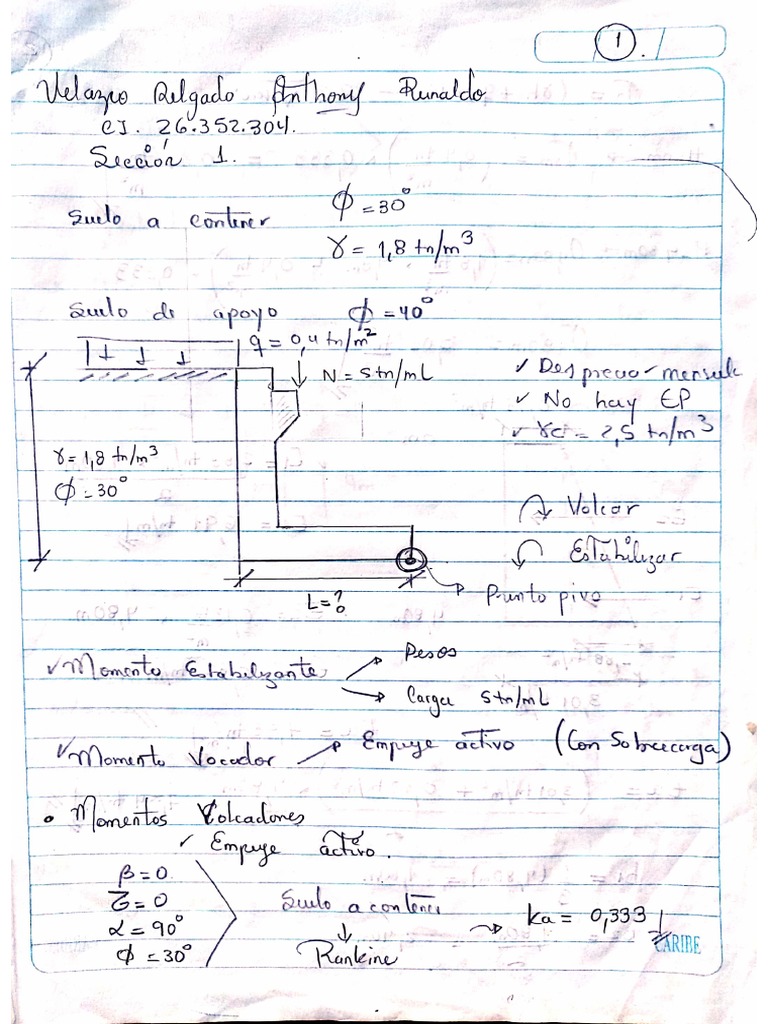 1.
Velazco Delgado Anthony Runaldo
CI. 26.352.304.
Sección 1.
Suelo a contener
φ = 30°
γ = 1,8 tn/m³
Suelo de apoyo φ = 40°
q = 0,4 tn/m²
N = 5 tn/mL
✓ Despreciar mensula
✓ No hay EP
✓ γc = 2,5 tn/m³
γ = 1,8 tn/m³
φ = 30°
Volcar
Estabilizar
Punto pivo
L = ?
✓ Momento Estabilizante
Pesos
Carga 5 tn/mL
✓ Momento Vocador → Empuje activo (Con Sobrecarga)
• Momentos Volcadores
✓ Empuje activo.
β = 0
δ = 0
α = 90°
φ = 30°
Suelo a contener
↓
Rankine
→ ka = 0,333
CARIBE